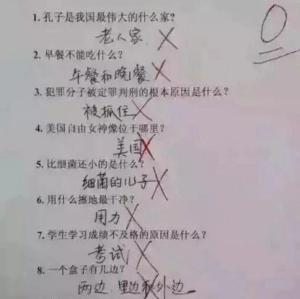 1. 孔子是我国最伟大的什么家?
老人家
2. 早餐不能吃什么?
午餐和晚餐
3. 犯罪分子被定罪判刑的根本原因是什么?
被抓住
4. 美国自由女神像位于哪里?
美国
5. 比细菌还小的是什么?
细菌的儿子
6. 用什么擦地最干净?
用力
7. 学生学习成绩不及格的原因是什么?
考试
8. 一个盒子有几边?
两边,里边和外边
0